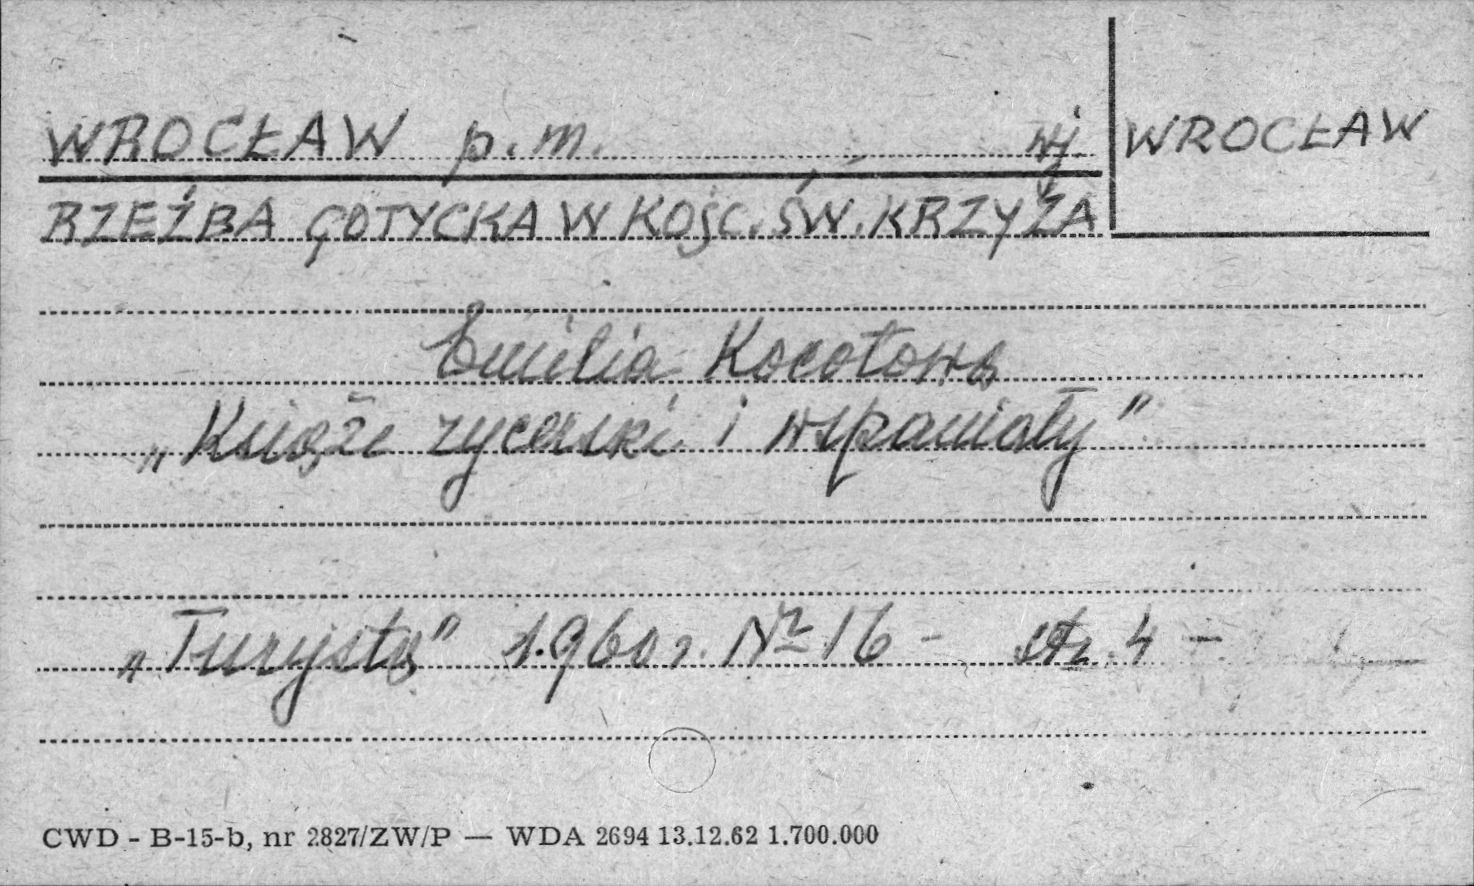 WROCŁAW p.m. wj. WROCŁAW
RZEŹBA GOTYCKA W KOŚC. ŚW. KRZYŻA
Emilia Kocotowa
„Książe rycerski i wspaniały”
„Turysta” 1.960 r. Nr 16 - str. 4 -
CWD - B-15-b, nr 2827/ZW/P — WDA 2694 13.12.62 1.700.000